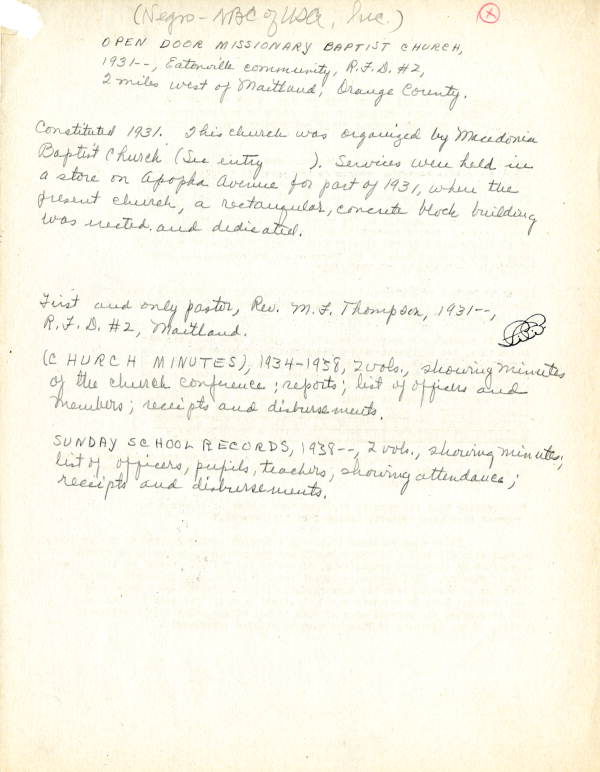 (Negro - NBC of USA, Inc.)
OPEN DOOR MISSIONARY BAPTIST CHURCH,
1931--, Eatonville community, R.F.D. #2,
2 miles west of Maitland, Orange County.
Constituted 1931. This church was organized by Macedonia
Baptist Church (See entry ). Services were held in
a store on Apopka Avenue for part of 1931, when the
present church, a rectangular, concrete block building
was erected and dedicated.
First and only pastor, Rev. M.F. Thompson, 1931--,
R.F.D. #2, Maitland.
(CHURCH MINUTES), 1934-1938, 2 vols., showing minutes
of the church conference; reports; list of officers and
members; receipts and disbursements.
SUNDAY SCHOOL RECORDS, 1938--, 2 vols., showing minutes;
list of officers, pupils, teachers, showing attendance;
receipts and disbursements.